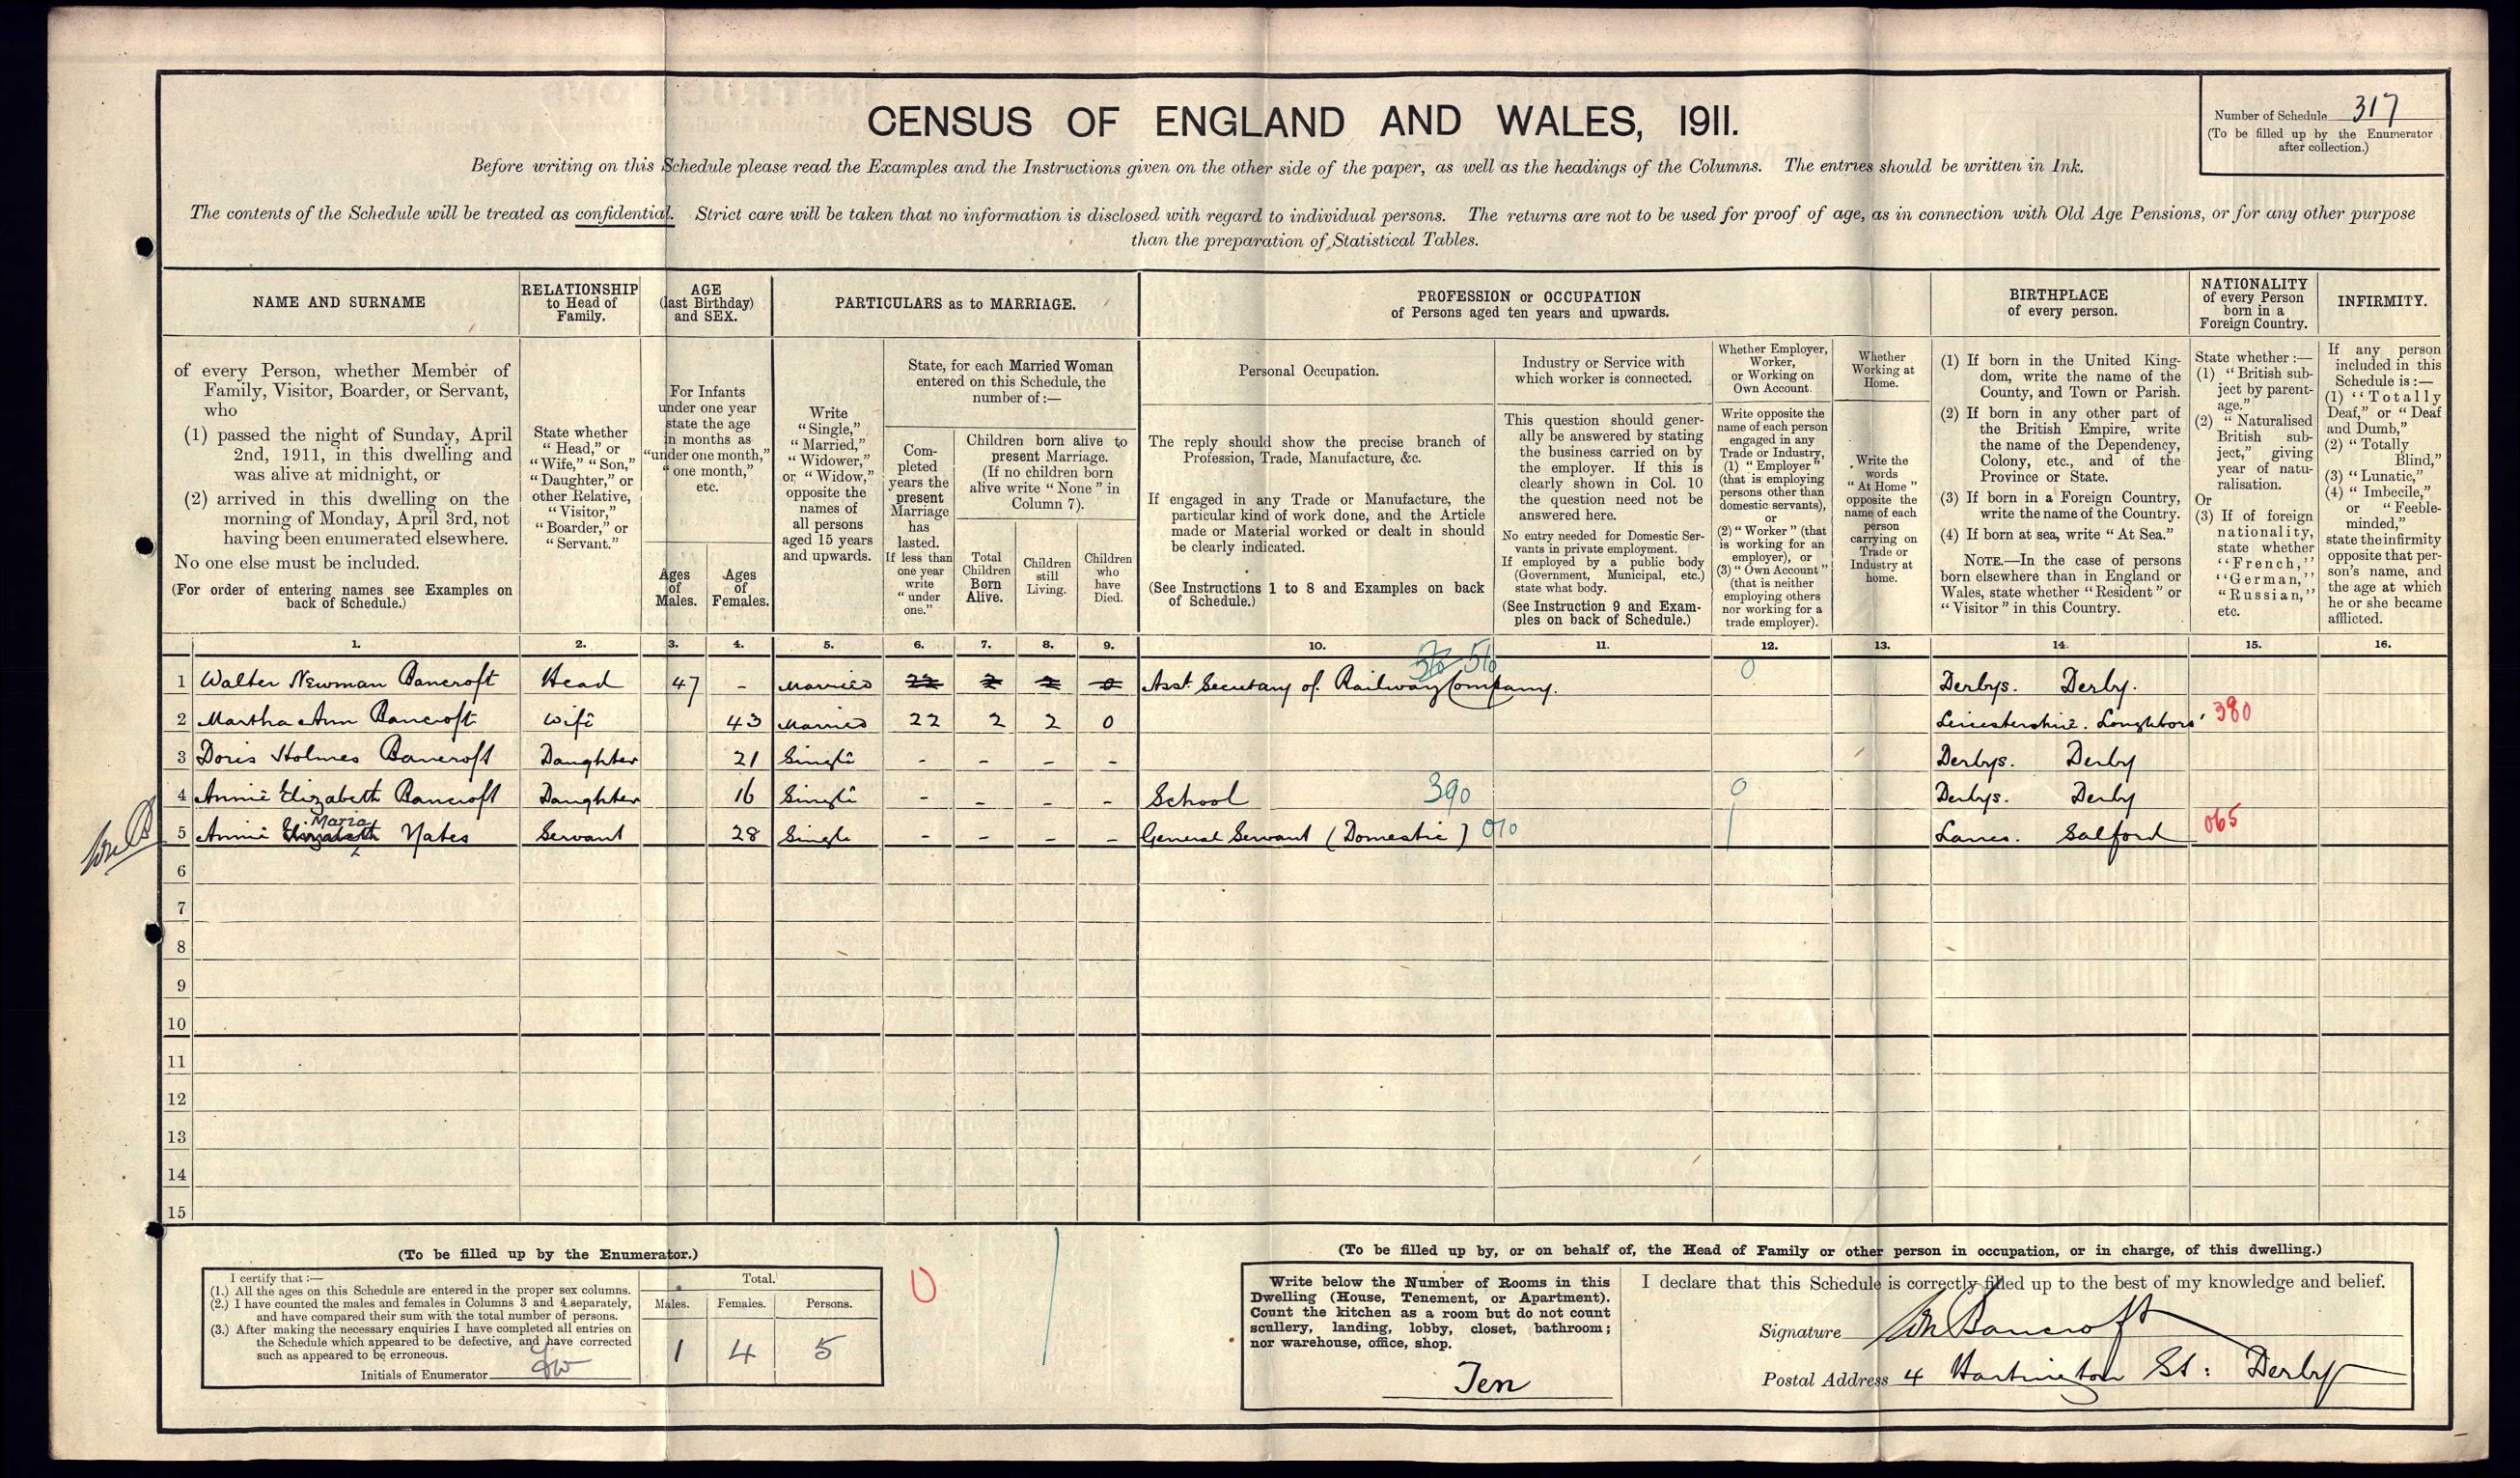 CENSUS OF ENGLAND AND WALES, 1911.
Number of Schedule 317
(To be filled up by the Enumerator
after collection.)
Before writing on this Schedule please read the Examples and the Instructions given on the other side of the paper, as well as the headings of the Columns. The entries should be written in Ink.
The contents of the Schedule will be treated as confidential. Strict care will be taken that no information is disclosed with regard to individual persons. The returns are not to be used for proof of age, as in connection with Old Age Pensions, or for any other purpose
than the preparation of Statistical Tables.
NAME AND SURNAME
of every Person, whether Member of
Family, Visitor, Boarder, or Servant,
who
(1) passed the night of Sunday, April
2nd, 1911, in this dwelling and
was alive at midnight, or
(2) arrived in this dwelling on the
morning of Monday, April 3rd, not
having been enumerated elsewhere.
No one else must be included.
(For order of entering names see Examples on
back of Schedule.)
RELATIONSHIP
to Head of
Family.
State whether
“Head,” or
“Wife,” “Son,”
“Daughter,” or
other Relative,
“Visitor,”
“Boarder,” or
“Servant.”
AGE
(last Birthday)
and SEX.
For Infants
under one year
state the age
in months as
“under one month,”
“one month,”
etc.
Ages
of
Males.
Ages
of
Females.
PARTICULARS as to MARRIAGE.
Write
“Single,”
“Married,”
“Widower,”
or “Widow,”
opposite the
names of
all persons
aged 15 years
and upwards.
State, for each Married Woman
entered on this Schedule, the
number of:—
Com-
pleted
years the
present
Marriage
has
lasted.
If less than
one year
write
“under
one.”
Children born alive to
present Marriage.
(If no children born
alive write “None” in
Column 7).
Total
Children
Born
Alive.
Children
still
Living.
Children
who
have
Died.
PROFESSION or OCCUPATION
of Persons aged ten years and upwards.
Personal Occupation.
The reply should show the precise branch of
Profession, Trade, Manufacture, &c.
If engaged in any Trade or Manufacture, the
particular kind of work done, and the Article
made or Material worked or dealt in should
be clearly indicated.
(See Instructions 1 to 8 and Examples on back
of Schedule.)
Industry or Service with
which worker is connected.
This question should gener-
ally be answered by stating
the business carried on by
the employer. If this is
clearly shown in Col. 10
the question need not be
answered here.
No entry needed for Domestic Ser-
vants in private employment.
If employed by a public body
(Government, Municipal, etc.)
state what body.
(See Instruction 9 and Exam-
ples on back of Schedule.)
Whether Employer,
Worker,
or Working on
Own Account.
Write opposite the
name of each person
engaged in any
Trade or Industry,
(1) “Employer”
(that is employing
persons other than
domestic servants),
or
(2) “Worker” (that
is working for an
employer), or
(3) “Own Account”
(that is neither
employing others
nor working for a
trade employer).
Whether
Working at
Home.
Write the
words
“At Home”
opposite the
name of each
person
carrying on
Trade or
Industry at
home.
BIRTHPLACE
of every person.
(1) If born in the United King-
dom, write the name of the
County, and Town or Parish.
(2) If born in any other part of
the British Empire, write
the name of the Dependency,
Colony, etc., and of the
Province or State.
(3) If born in a Foreign Country,
write the name of the Country.
(4) If born at sea, write “At Sea.”
NOTE.—In the case of persons
born elsewhere than in England or
Wales, state whether “Resident” or
“Visitor” in this Country.
NATIONALITY
of every Person
born in a
Foreign Country.
State whether:—
(1) “British sub-
ject by parent-
age.”
(2) “Naturalised
British sub-
ject,” giving
year of natu-
ralisation.
Or
(3) If of foreign
nationality,
state whether
“French,”
“German,”
“Russian,”
etc.
INFIRMITY.
If any person
included in this
Schedule is:—
(1) “Totally
Deaf,” or “Deaf
and Dumb,”
(2) “Totally
Blind,”
(3) “Lunatic,”
(4) “Imbecile,”
or “Feeble-
minded,”
state the infirmity
opposite that per-
son's name, and
the age at which
he or she became
afflicted.
1. 2. 3. 4. 5. 6. 7. 8. 9. 10. 11. 12. 13. 14. 15. 16.
510
1 Walter Newman Bancroft Head 47 - Married 22 2 2 0 Asst. Secretary of Railway Company. 0 Derbys. Derby.
2 Martha Ann Bancroft Wife 43 Married 22 2 2 0 Leicestershire. Loughboro' 380
3 Doris Holmes Bancroft Daughter 21 Single - - - - Derbys. Derby
4 Annie Elizabeth Bancroft Daughter 16 Single - - - - School 390 0 Derbys. Derby
Maria
5 Annie Elizabeth Yates Servant 28 Single - - - - General Servant (Domestic) 010 1 Lancs. Salford 065
6
7
8
9
10
11
12
13
14
15
(To be filled up by the Enumerator.)
I certify that:—
(1.) All the ages on this Schedule are entered in the proper sex columns.
(2.) I have counted the males and females in Columns 3 and 4 separately,
and have compared their sum with the total number of persons.
(3.) After making the necessary enquiries I have completed all entries on
the Schedule which appeared to be defective, and have corrected
such as appeared to be erroneous.
Initials of Enumerator
Total.
Males. Females. Persons.
1 4 5
0
(To be filled up by, or on behalf of, the Head of Family or other person in occupation, or in charge, of this dwelling.)
Write below the Number of Rooms in this
Dwelling (House, Tenement, or Apartment).
Count the kitchen as a room but do not count
scullery, landing, lobby, closet, bathroom;
nor warehouse, office, shop.
Ten
I declare that this Schedule is correctly filled up to the best of my knowledge and belief.
Signature WN Bancroft
Postal Address 4 Hartington St: Derby